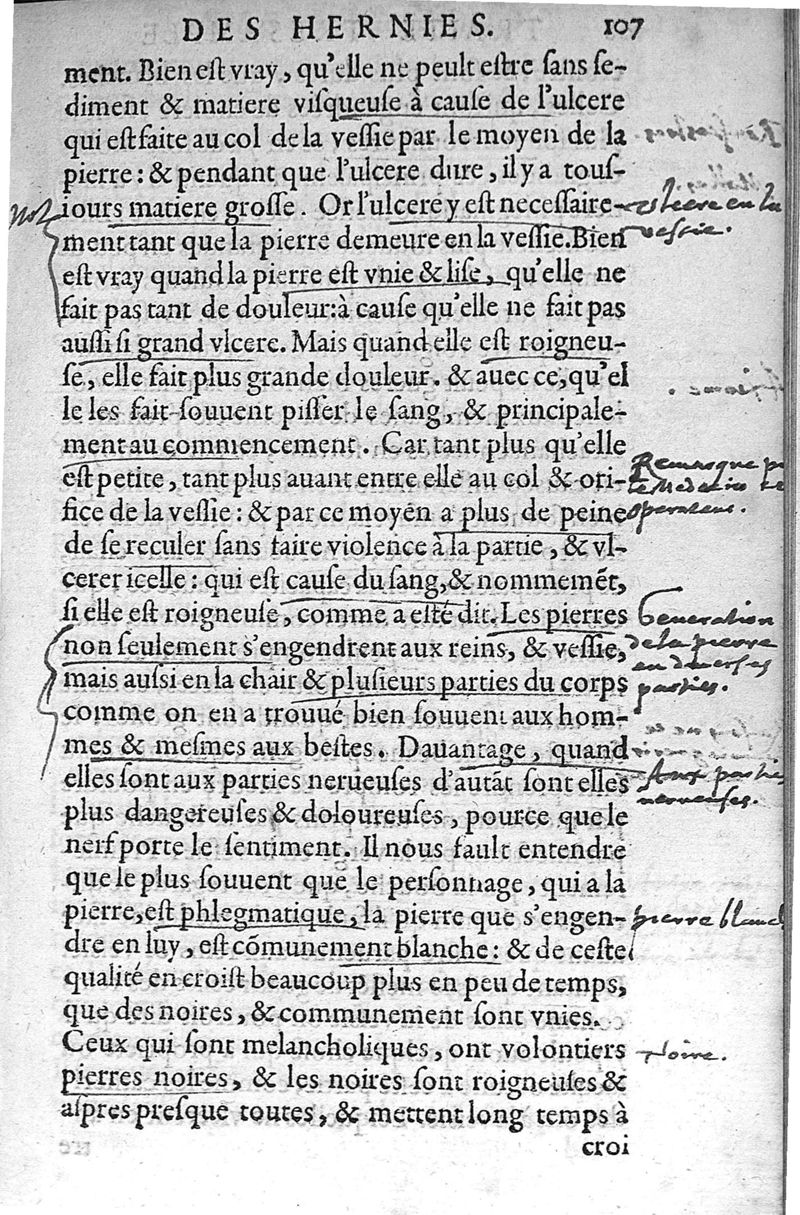 DES HERNIES. 107
ment. Bien eſt vray, qu'elle ne peult eſtre ſans ſe-
diment & matiere viſqueuſe à cauſe de l'ulcere
qui eſt faite au col de la veſsie par le moyen de la
pierre: & pendant que l'ulcere dure, il y a touſ-
Not
iours matiere groſſe. Or l'ulcere y est neceſſaire-
vlcere en la
ment tant que la pierre demeure en la veſsie. Bien
vessie.
eſt vray quand la pierre eſt vnie & liſe, qu'elle ne
fait pas tant de douleur: à cauſe qu'elle ne fait pas
auſsi ſi grand vlcere. Mais quand elle eſt roigneu-
ſe, elle fait plus grande douleur. & auec ce, qu'el
le les fait ſouuent piſſer le ſang, & principale-
ment au commencement. Car tant plus qu'elle
Remarque
eſt petite, tant plus auant entre elle au col & ori-
le Medecin
fice de la veſsie: & par ce moyen a plus de peine
operateur.
de ſe reculer ſans faire violence à la partie, & vl-
cerer icelle: qui eſt cauſe du ſang, & nommemẽt,
ſi elle eſt roigneuſe, comme a eſté dit. Les pierres
Generation
non ſeulement s'engendrent aux reins, & veſsie,
de la pierre
mais auſsi en la chair & pluſieurs parties du corps
en diverses
parties.
comme on en a trouué bien ſouuent aux hom-
mes & meſmes aux beſtes. Dauantage, quand
elles ſont aux parties nerueuſes d'autãt ſont elles
Aux parties
nerveuses.
plus dangereuſes & doloureuſes, pource que le
nerf porte le ſentiment. Il nous fault entendre
que le plus ſouuent que le perſonnage, qui a la
pierre, eſt phlegmatique, la pierre que s'engen-
pierre blanch
dre en luy, eſt cõmunement blanche: & de ceſte
qualité en croiſt beaucoup plus en peu de temps,
que des noires, & communement ſont vnies.
Ceux qui ſont melancholiques, ont volontiers
Noire.
pierres noires, & les noires ſont roigneuſes &
aſpres preſque toutes, & mettent long temps à
croi